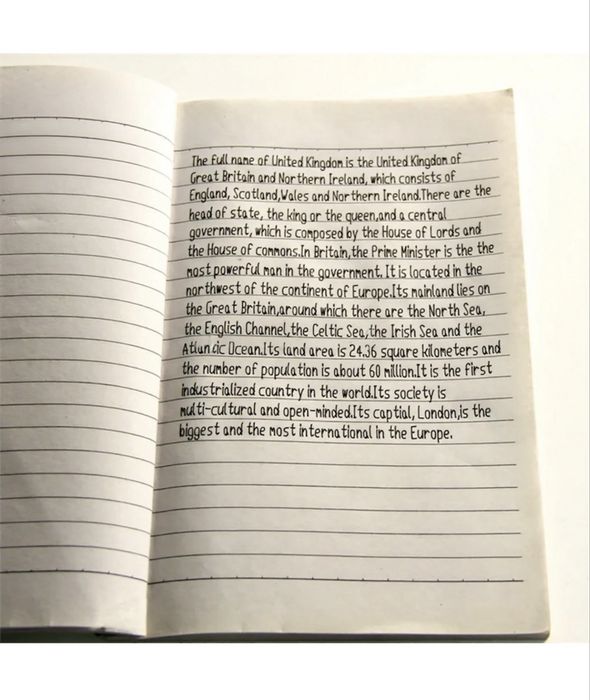 The full name of United Kingdom is the United Kingdom of
Great Britain and Northern Ireland, which consists of
England, Scotland,Wales and Northern Ireland.There are the
head of state, the king or the queen,and a central
government, which is composed by the House of Lords and
the House of commons.In Britain,the Prime Minister is the the
most powerful man in the government. It is located in the
northwest of the continent of Europe.Its mainland lies on
the Great Britain,around which there are the North Sea,
the English Channel,the Celtic Sea,the Irish Sea and the
Atlantic Ocean.Its land area is 24.36 square kilometers and
the number of population is about 60 million.It is the first
industrialized country in the world.Its society is
multi-cultural and open-minded.Its captial, London,is the
biggest and the most international in the Europe.